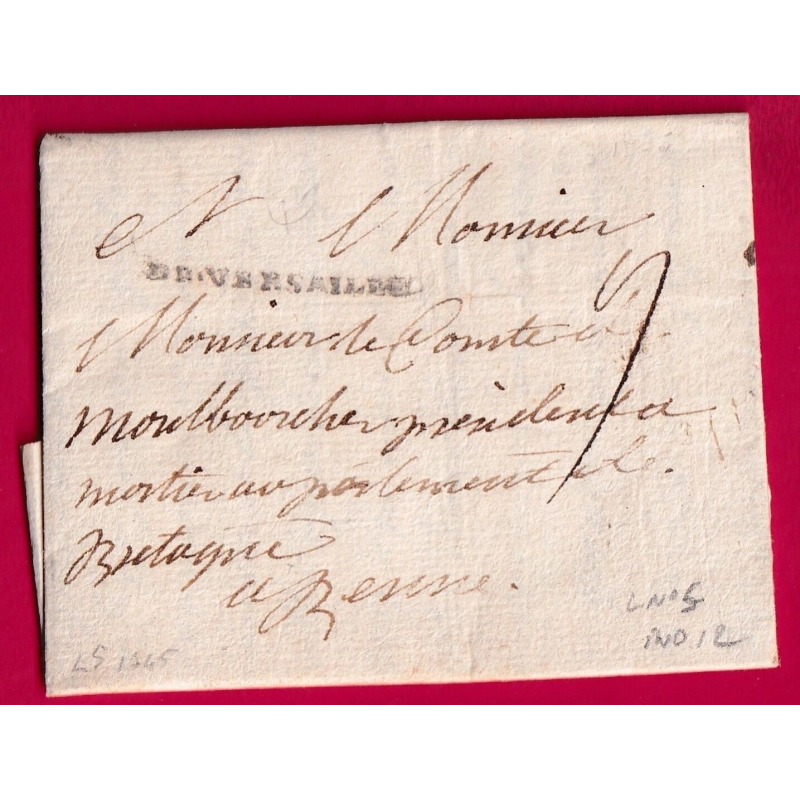 A Monsieur
DE VERSAILLE
Monsieur le Comte de
montbourcher president a
mortier au parlement de
Bretagne
a Renne.
L No 5
IND 12